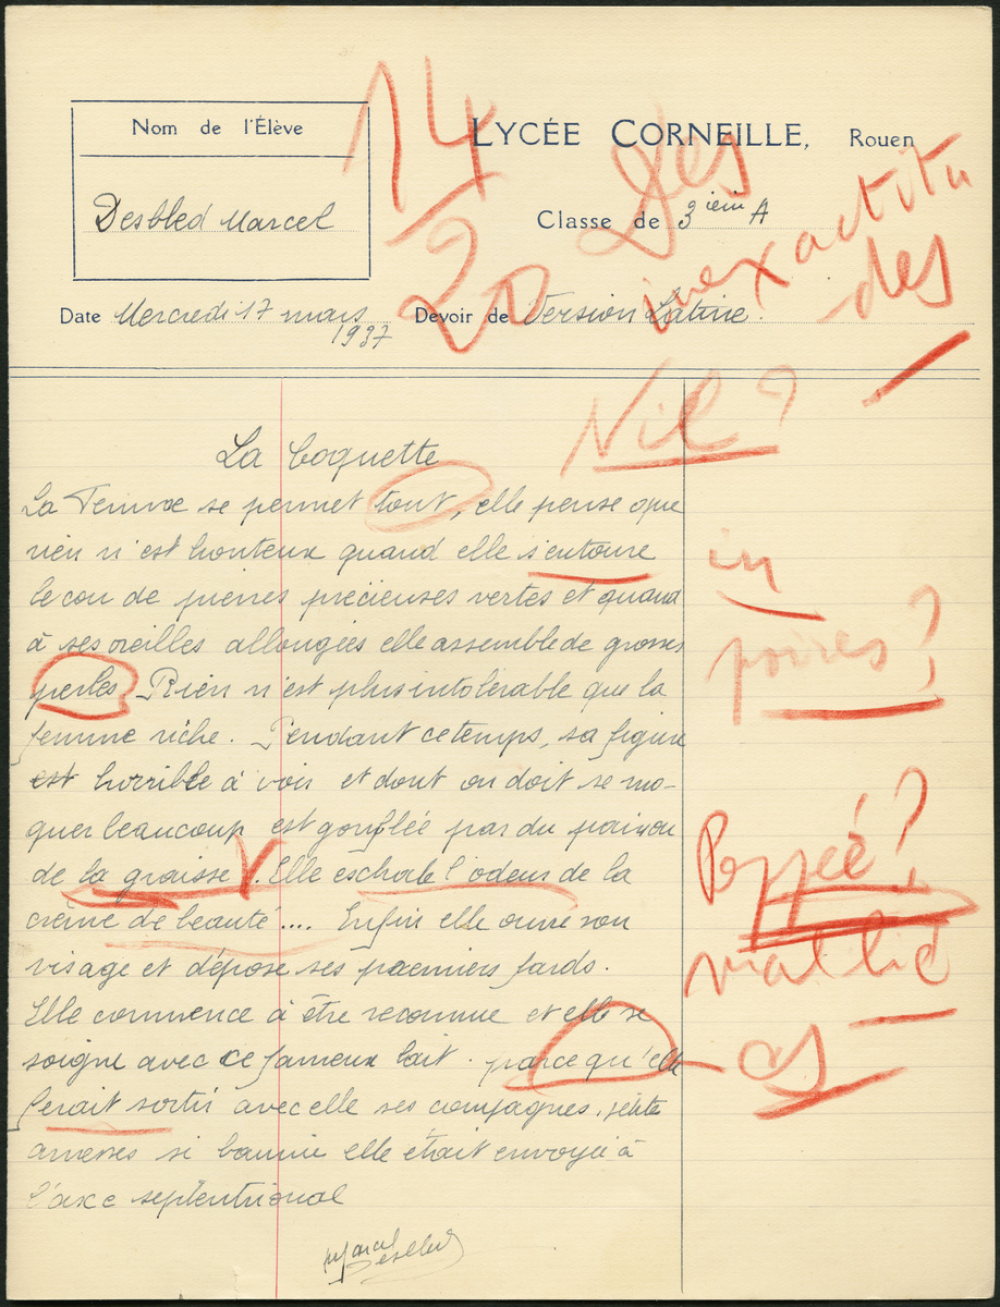 14
20
Des
inexactitu
des
Nom de l'Élève
Desbled Marcel
LYCÉE CORNEILLE, Rouen
Classe de 3ièm A
Date Mercredi 17 mars
1937
Devoir de Version Latine.
Nil?
La Coquette
La Femme se permet tout, elle pense que
rien n'est honteux quand elle s'entoure
le cou de pierres précieuses vertes et quand
in
à ses oreilles allongées elle assemble de grosses
poires?
perles. Rien n'est plus intolérable que la
femme riche. Pendant ce temps, sa figure
est horrible à voir et dont on doit se mo-
quer beaucoup est gonflée par du
Poppée?
de la graisse V. Elle eschale l'odeur de la
crème de beauté .... Enfin elle ouvre son
visage et dépose ses premiers fards.
Elle commence à être reconnue et elle se
soigne avec ce fameux lait. parce qu'elle
as
ferait sortir avec elle ses compagnes,
anesses si bannie elle était envoyée à
l'axe septentrional
Marcel Desbled